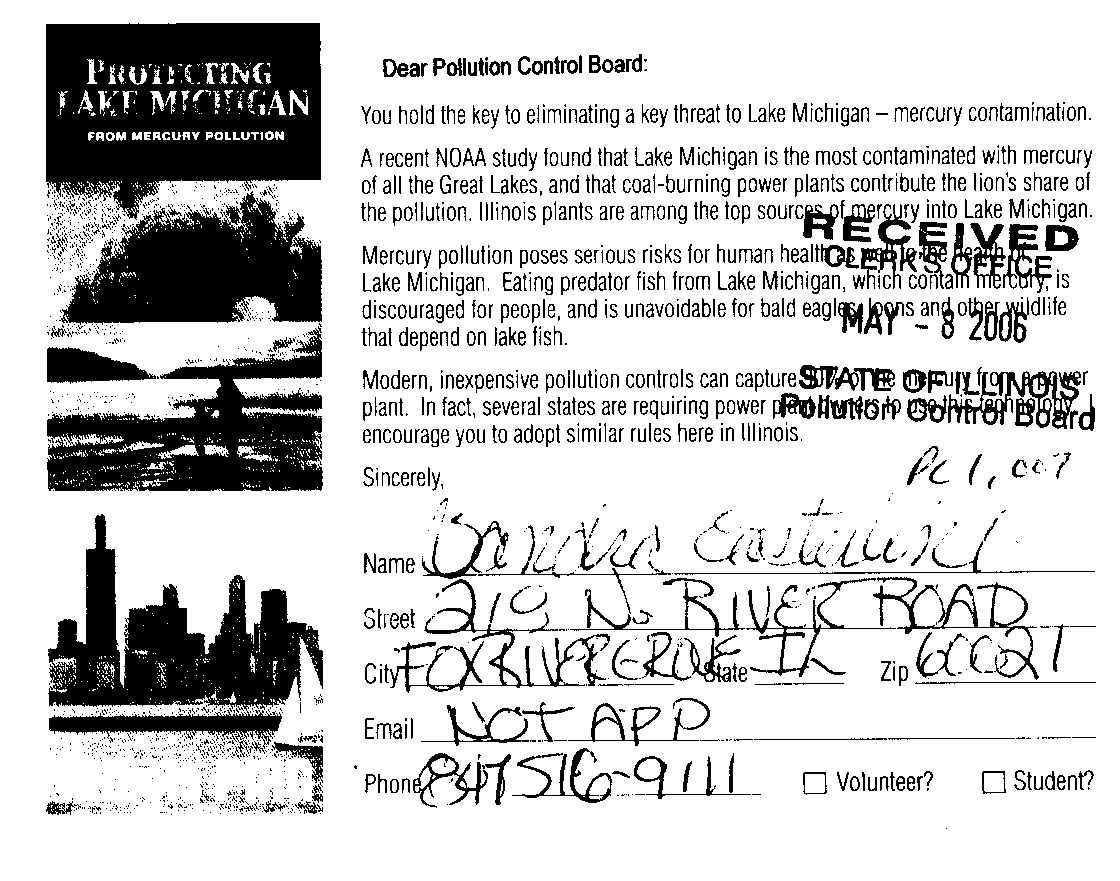 PROTECTING
LAKE MICHIGAN
FROM MERCURY POLLUTION
Dear Pollution Control Board:
You hold the key to eliminating a key threat to Lake Michigan – mercury contamination.
A recent NOAA study found that Lake Michigan is the most contaminated with mercury
of all the Great Lakes, and that coal-burning power plants contribute the lion's share of
the pollution. Illinois plants are among the top sources of mercury into Lake Michigan.
RECEIVED
CLERK'S OFFICE
MAY - 8 2006
STATE OF ILLINOIS
Pollution Control Board
Mercury pollution poses serious risks for human health as well to the health of
Lake Michigan. Eating predator fish from Lake Michigan, which contain mercury, is
discouraged for people, and is unavoidable for bald eagles, loons and other wildlife
that depend on lake fish.
Modern, inexpensive pollution controls can capture of the mercury from a power
plant. In fact, several states are requiring power plant owners to use this technology. I
encourage you to adopt similar rules here in Illinois.
PC 1,007
Sincerely,
Name Sandra
Street 219 No RIVER ROAD
City FOX RIVER GROVE State IL Zip 60021
Email NOT APP
Phone 847 516-9111 Volunteer? Student?